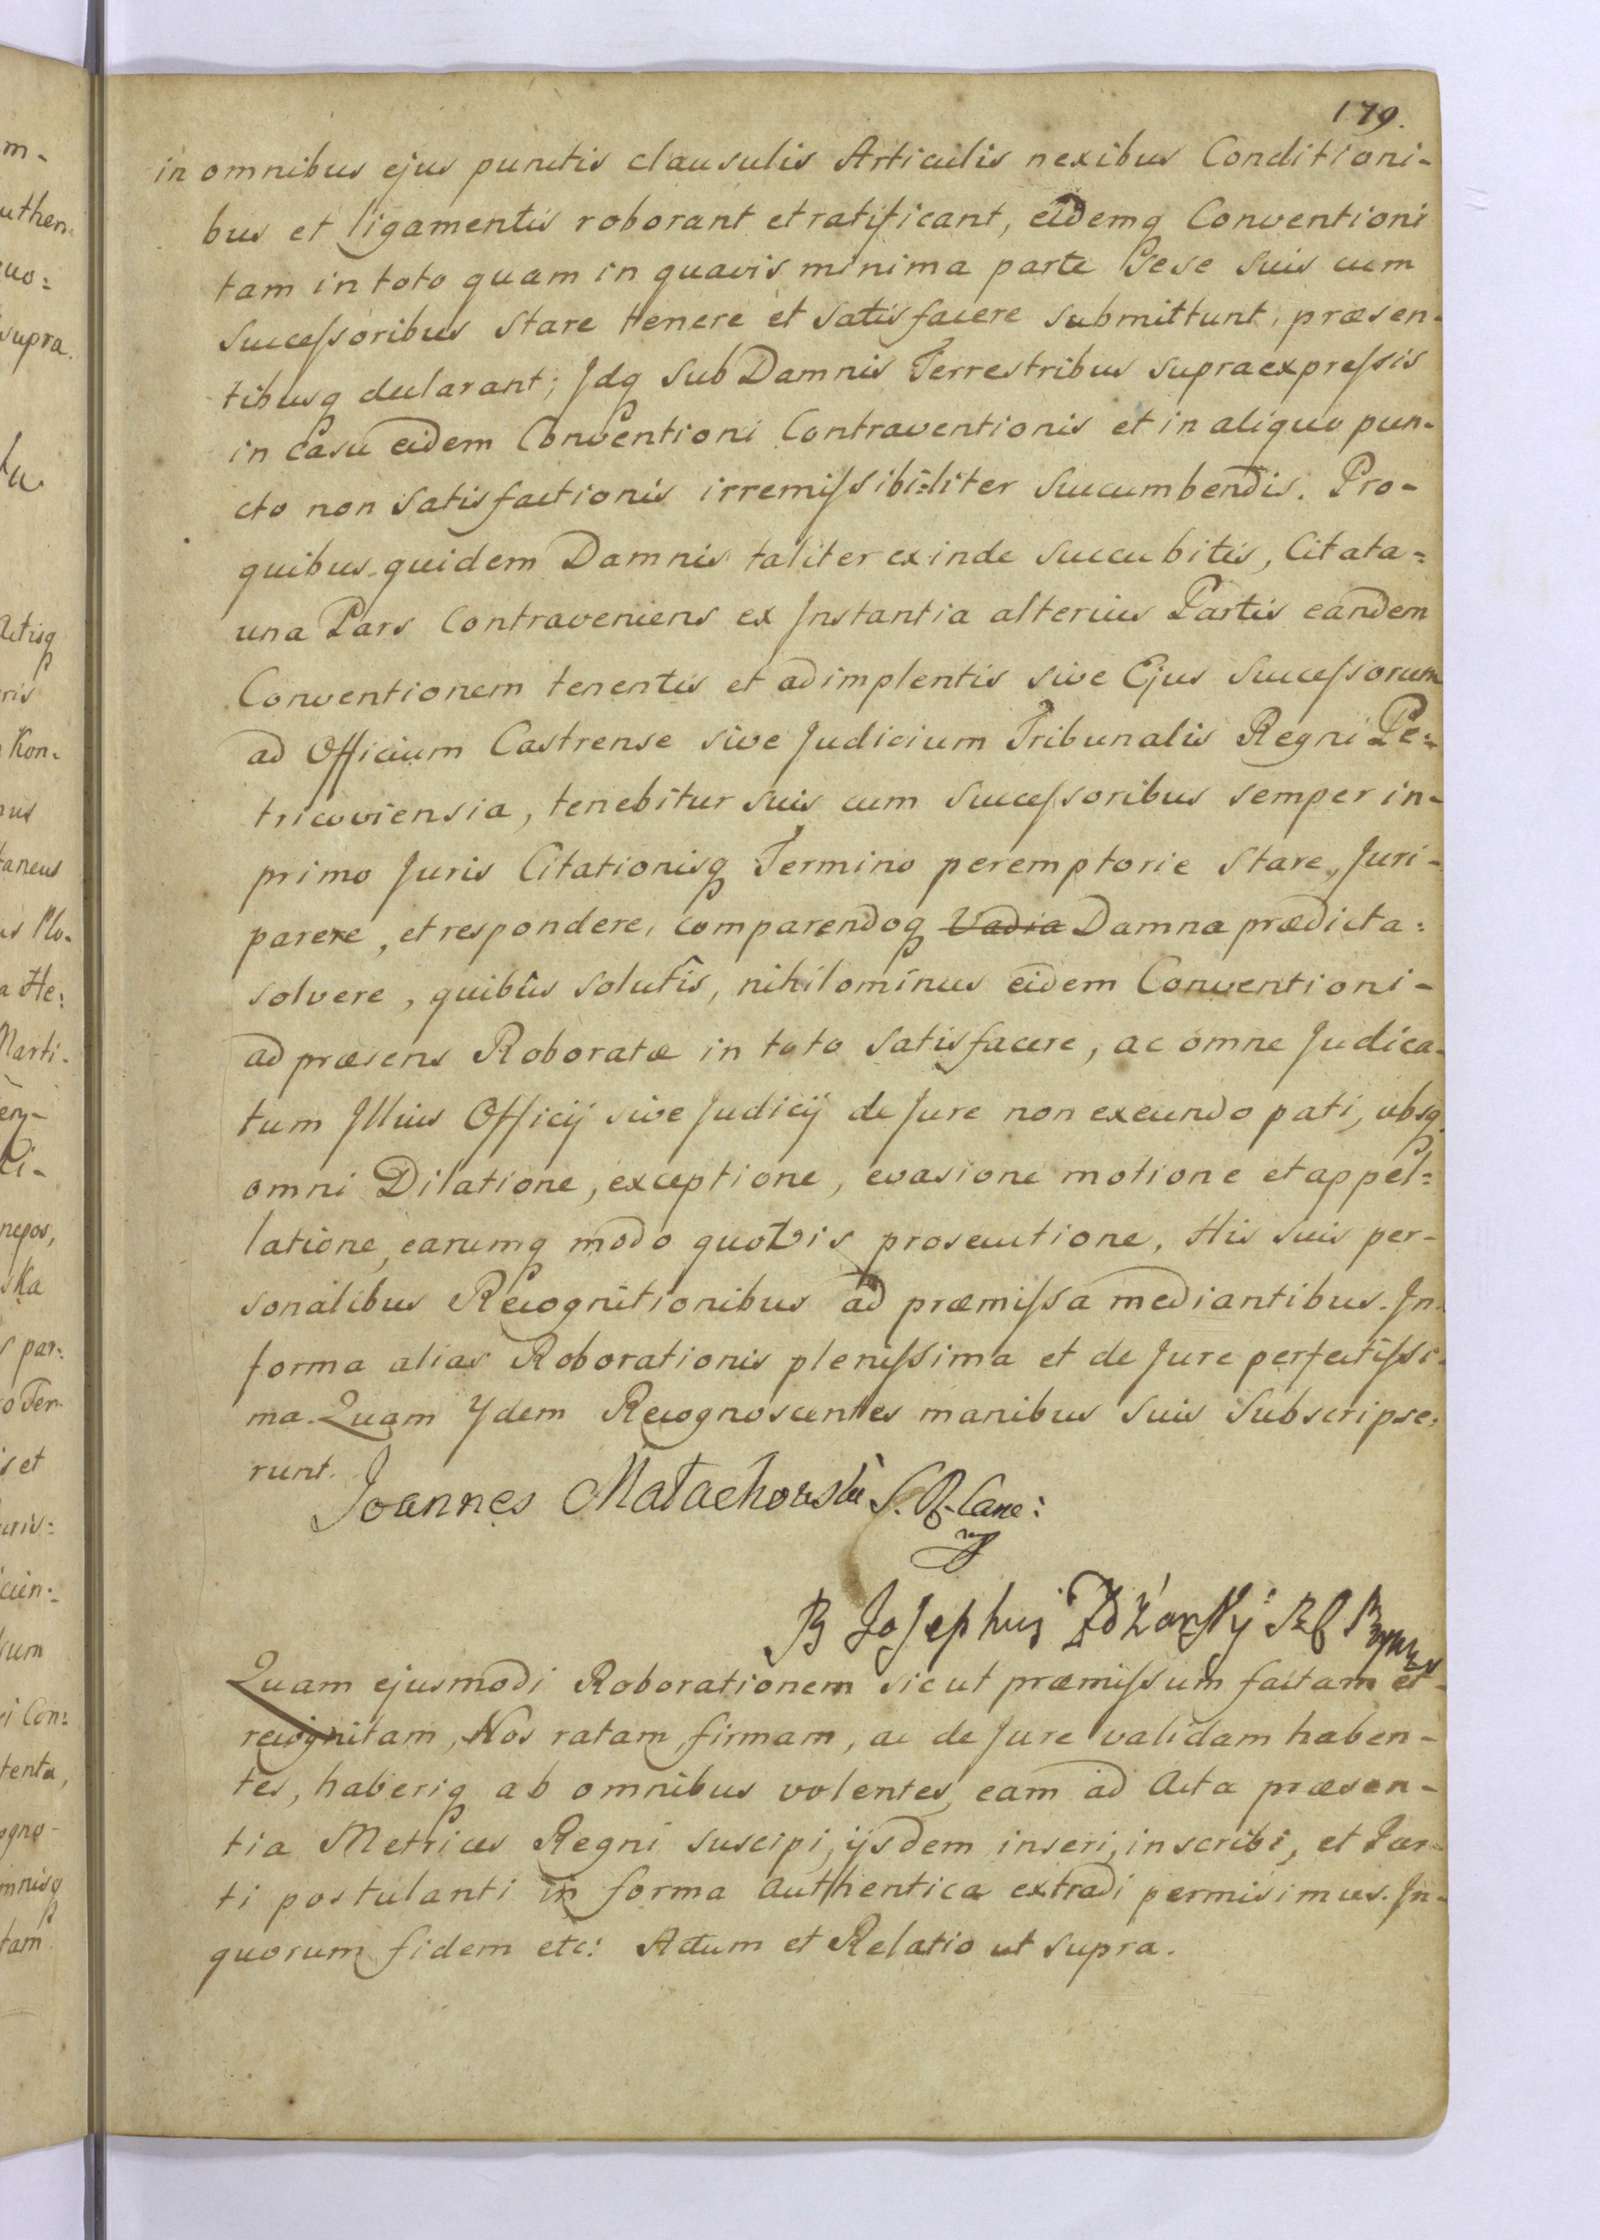 179.
in omnibus ejus punctis clausulis Articulis nexibus Conditioni-
bus et ligamentis roborant et ratificant, eidemq Conventioni
tam in toto quam in quavis minima parte sese suis cum
successoribus stare tenere et satisfacere submittunt, præsen-
tibusq declarant; Idq sub Damnis Terrestribus supraexpressis
in casu eidem Conventioni Contraventionis et in aliquo pun-
cto non satisfactionis irremissibi=liter succumbendis. Pro-
quibus quidem Damnis taliter exinde succubitis, Citata=
una Pars Contraveniens ex Instantia alterius Partis eandem
Conventionem tenentis et adimplentis sive Ejus Successorum
ad Officium Castrense sive Judicium Tribunalis Regni Pe=
tricoviensia, tenebitur suis cum successoribus semper in-
primo Juris Citationisq Termino peremptorie stare, Juri-
parere, et respondere, comparendoq Vadia Damna prædicta=
solvere, quibûs solutîs, nihilominus eidem Conventioni-
ad præsens Roboratæ in toto satisfacere, ac omne Judica-
tum Illius Officij sive Judicij de Jure non exeundo pati, absq
omni Dilatione, exceptione, evasione motione et appel=
latione, earumq modo quovis prosecutione, His suis per-
sonalibus Recognitionibus ad præmissa mediantibus. In-
forma alias Roborationis plenissima et de Jure perfectissi-
ma. Quam Ydem Recognoscentes manibus suis subscripse=
runt.
Joannes Małachowski S. R. Canc:
B Josephus Zdżarskÿ
Quam ejusmodi Roborationem sicut præmissum factam et-
recognitam, Nos ratam, firmam, ac de Jure validam haben-
tes, haberiq ab omnibus volentes, eam ad Acta præsen-
tia Metrices Regni suscipi, ijsdem inseri, inscribi, et Par-
ti postulanti in forma authentica extradi permisimus. In-
quorum fidem etc: Actum et Relatio ut supra.